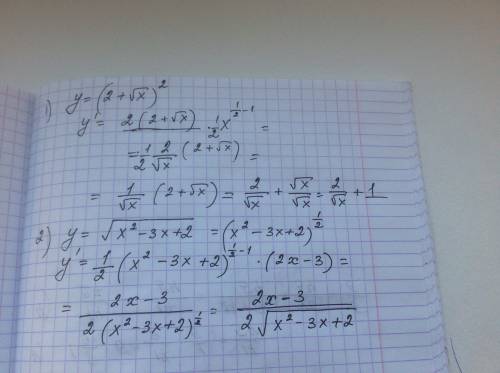 1) y = (2 + √x)²
y' = 2(2 + √x) · 1/2 x^(1/2 - 1) =
= 1/2 2/√x (2 + √x) =
= 1/√x (2 + √x) = 2/√x + √x/√x = 2/√x + 1
2) y = √(x² - 3x + 2) = (x² - 3x + 2)^(1/2)
y' = 1/2 (x² - 3x + 2)^(1/2 - 1) · (2x - 3) =
= (2x - 3)/(2(x² - 3x + 2)^(1/2)) = (2x - 3)/(2√(x² - 3x + 2))